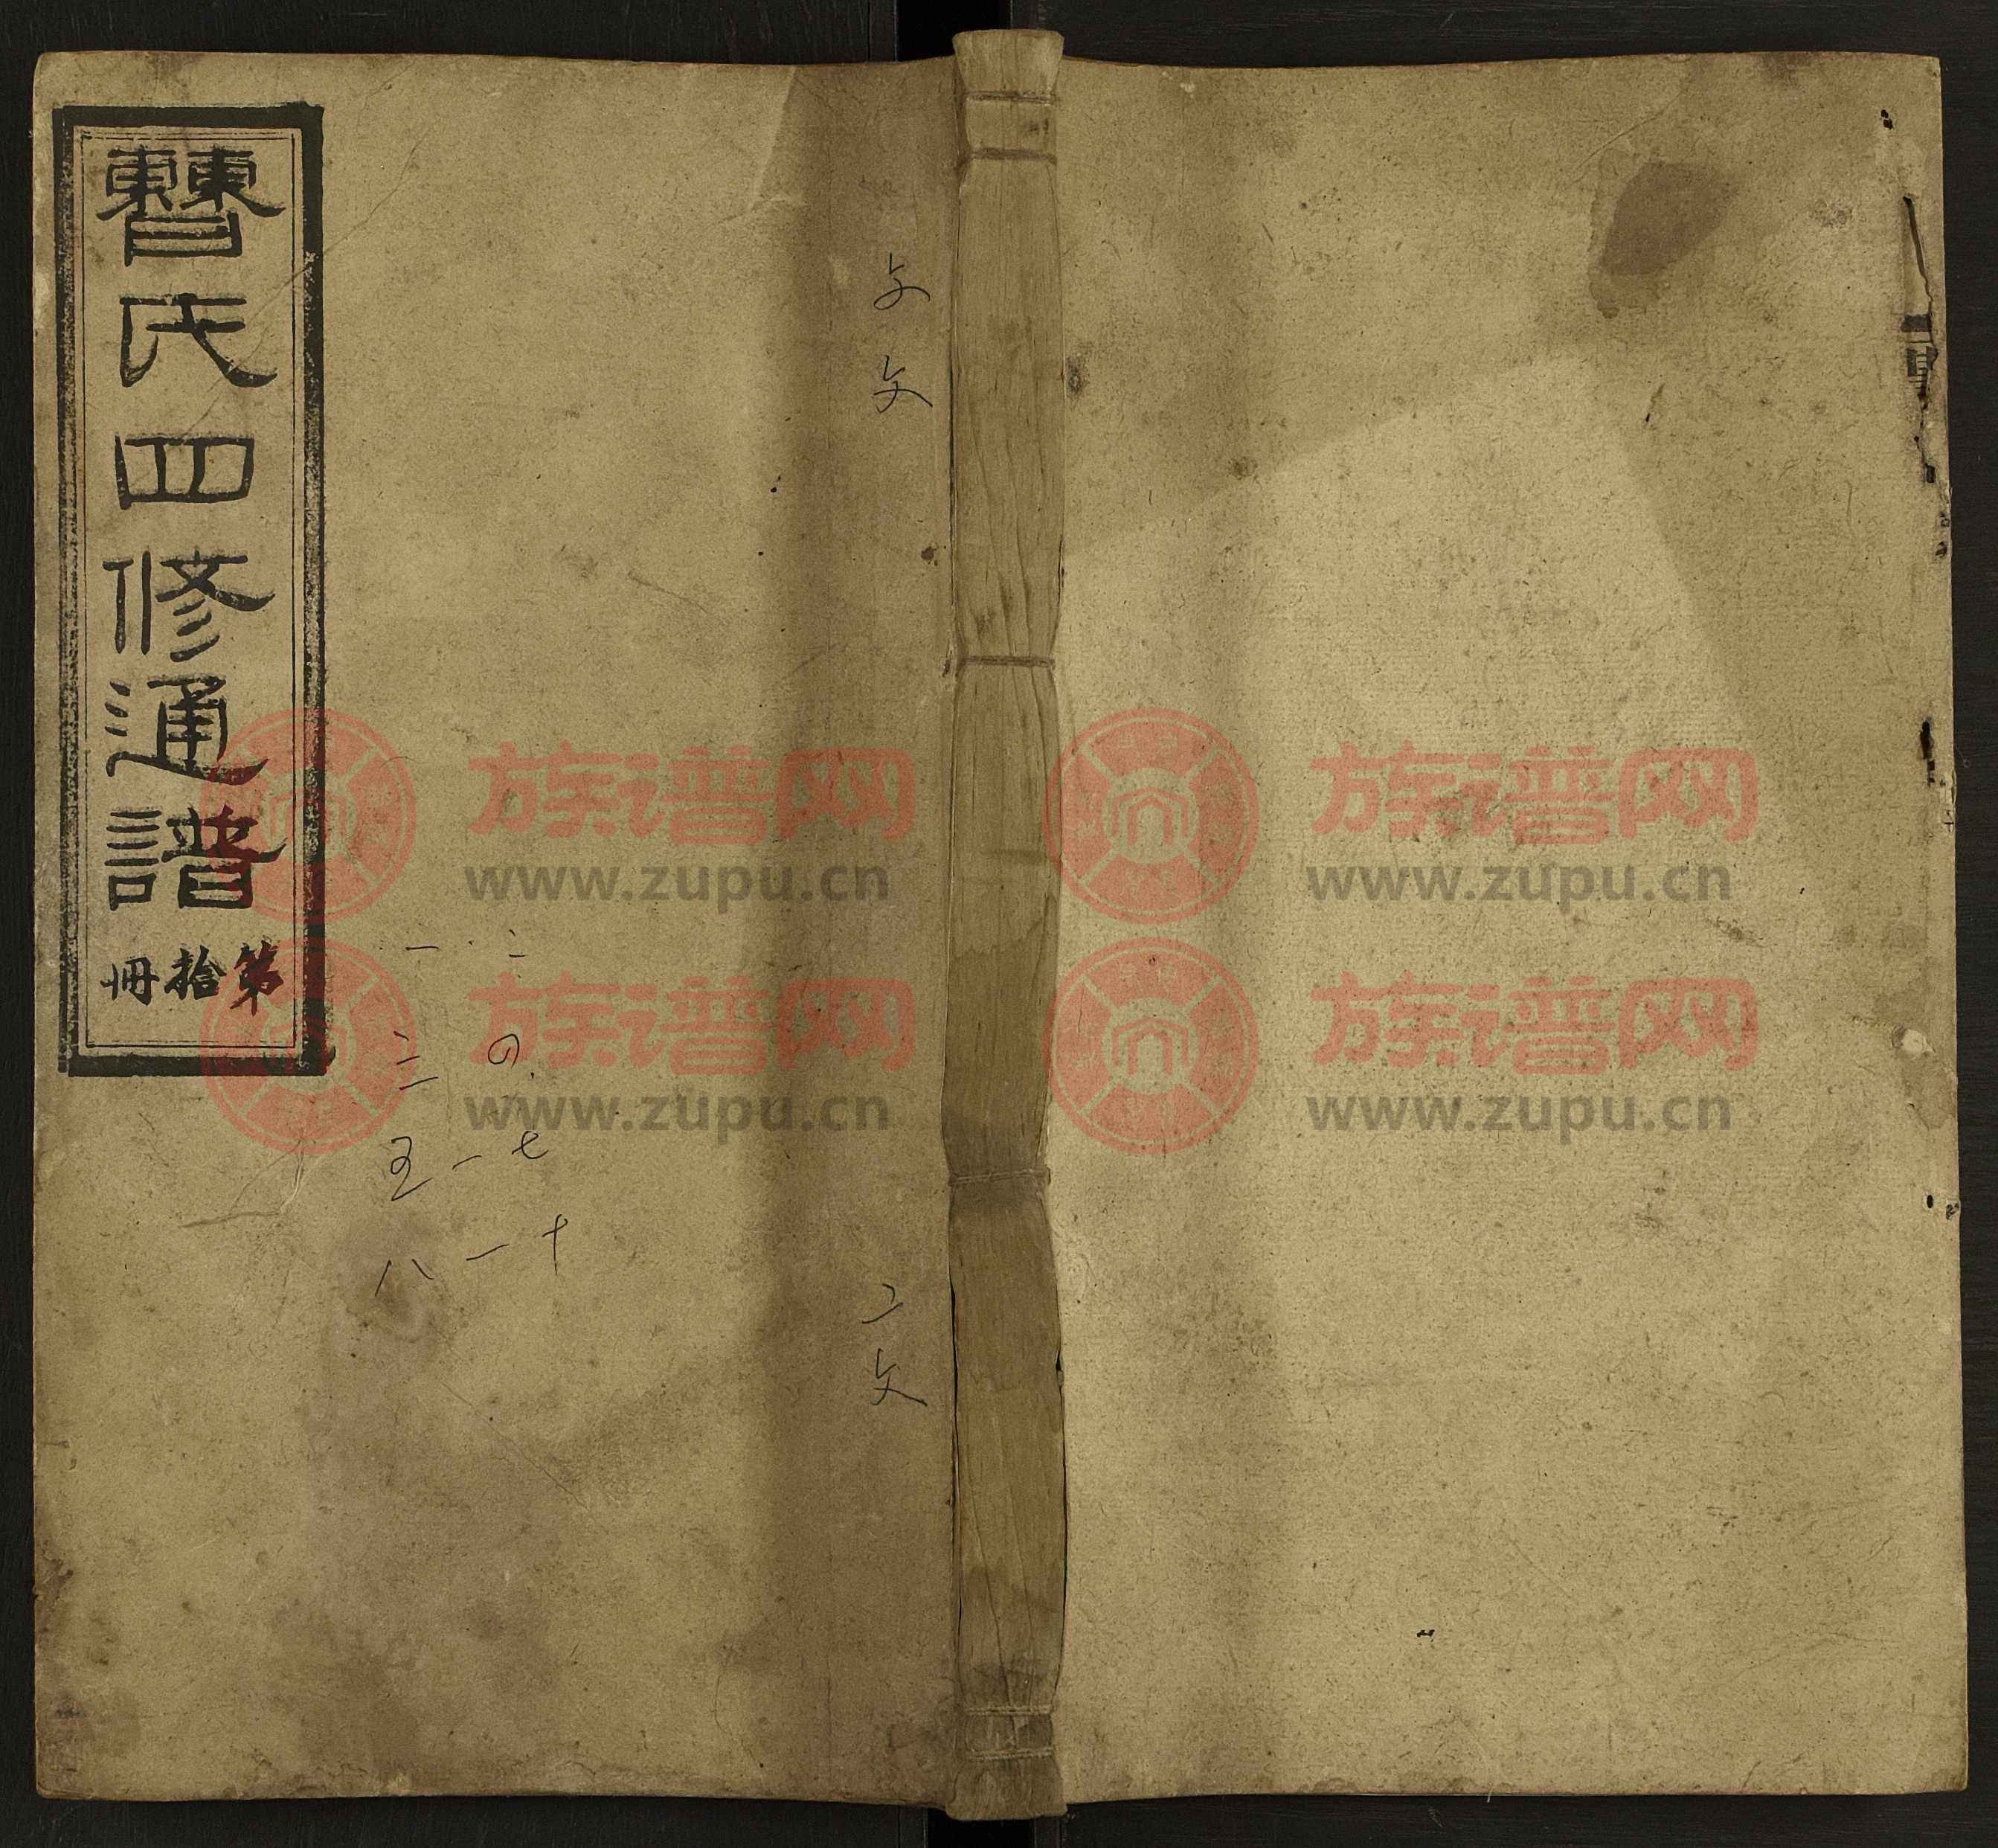 曹氏四修通譜
第拾冊
文
文
一
二
三 四
五一七
八一十
二
文
族谱网
www.zupu.cn
族谱网
www.zupu.cn
族谱网
www.zupu.cn
族谱网
www.zupu.cn